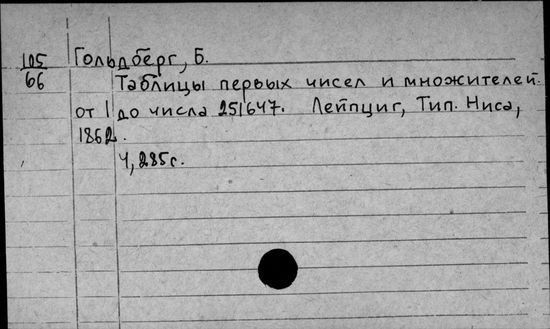 105 Гольдберг, Б.
66 Таблицы первых чисел и множителей
от 1 до числа 251647. Лейпциг, Тип. Ниса,
1862.
4, 285с.